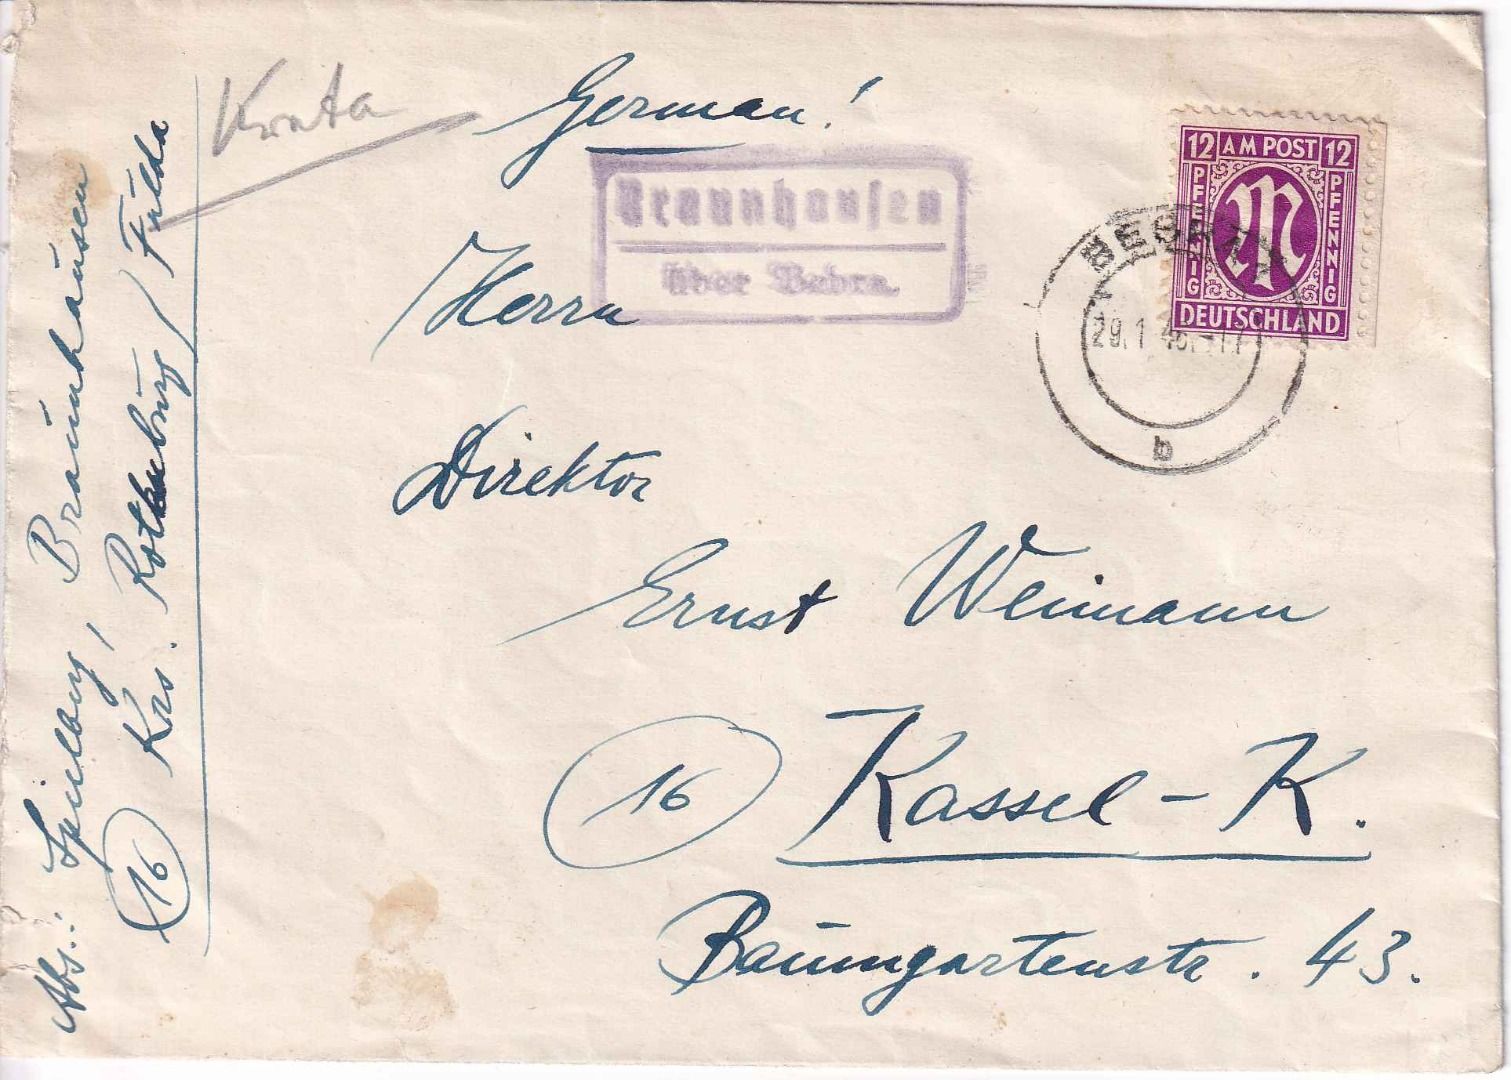 German!
Braunhausen
über Bebra.
12 AM POST 12
PFENNIG
PFENNIG
DEUTSCHLAND
29.1.46.-17
b
Herrn
Direktor
Ernst Weimann
16 Kassel-K.
Baumgartenstr. 43.
Abs.: Braunhausen
16 Krs. Rotenburg / Fulda